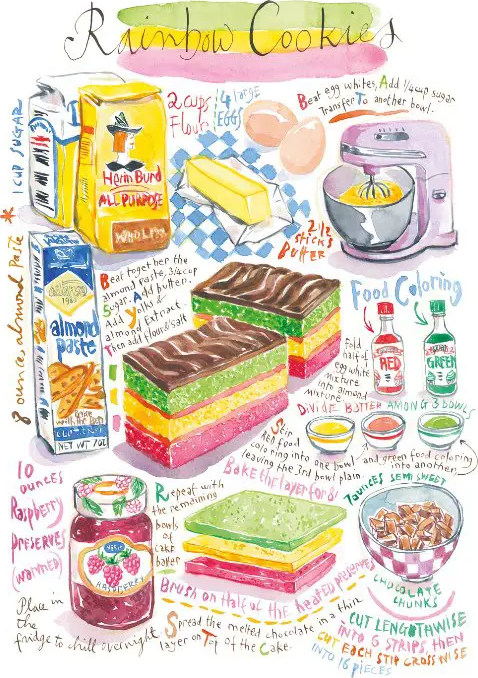 Rainbow Cookies
* 1 CUP SUGAR
2 cups
Flour
4 large
EGGS
Beat egg whites, Add 1/4 cup sugar
Transfer To another bowl.
Herin Burd
ALL PURPOSE
2 1/2
STICKS
BUTTER
8 ounces almond paste
almond
paste
NET WT 7OZ
Beat together the
almond paste, 3/4 cup
Sugar. Add butter.
Add yolks &
almond Extract.
Then add flour & salt
Food Coloring
RED
GREEN
Fold
half of
egg white
mixture
into almond
mixture
DIVIDE BATTER AMONG 3 BOWLS
Stir
red food
coloring into one bowl
and green food coloring
into another,
leaving the 3rd bowl plain
Bake the layer for 8
10
ounces
Raspberry
Preserves
(warmed)
RASPBERRY
Repeat with
the remaining
bowls
of
cake
bater
7 ounces SEMISWEET
CHOCOLATE
CHUNKS
Brush on Half of the heated preserves
Place in
the
fridge to chill overnight.
Spread the melted chocolate in a thin
layer on Top of the Cake.
CUT LENGTHWISE
INTO 6 STRIPS, THEN
CUT EACH STIP CROSSWISE
INTO 16 PIECES